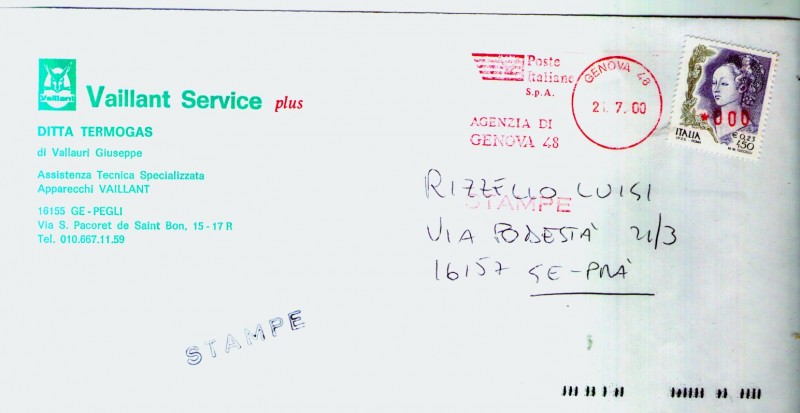 Vaillant
Vaillant Service plus
DITTA TERMOGAS
di Vallauri Giuseppe
Assistenza Tecnica Specializzata
Apparecchi VAILLANT
16155 GE - PEGLI
Via S. Pacoret de Saint Bon, 15 - 17 R
Tel. 010.667.11.59
STAMPE
Poste
Italiane
S.p.A.
AGENZIA DI
GENOVA 48
GENOVA 48
21.7.00
*000
ITALIA
€ 0,23
450
STAMPE
RIZZELLO LUIGI
VIA PODESTÀ 21/3
16157 GE-PRÀ